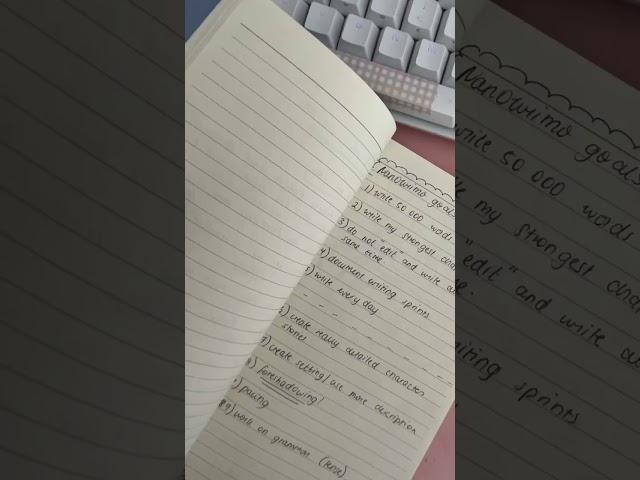 Nanowrimo goals
1) write 50 000 words
2) write my strongest
3) do not "edit" and write
same time.
4) document writing sprints
5) write every day
6) create really detailed character
stories
7) create setting / use more description
8) foreshadowing!
9) pacing
work on grammar (tense)